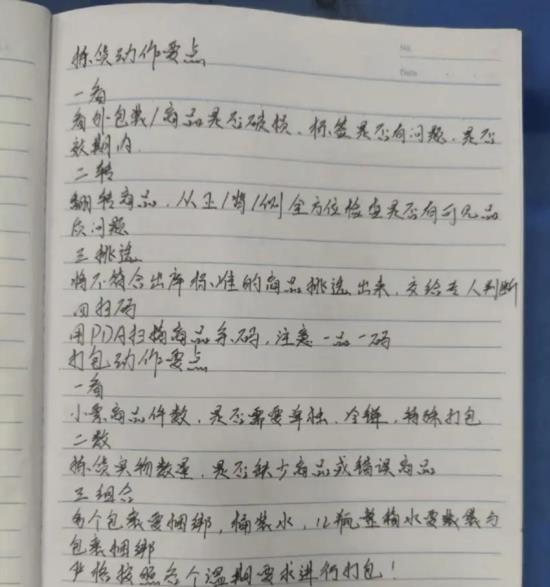 No.
Date
拣货动作要点
一看
看外包装/商品是否破损、标签是否有问题、是否
效期内
二转
翻转商品，从正/背/侧全方位检查是否有可见品
质问题
三挑选
将不符合出库标准的商品挑选出来，交给专人判断
四扫码
用PDA扫描商品条码，注意一品一码
打包动作要点
一看
小票商品件数，是否需要单独、冷链，特殊打包
二数
拣货实物数量，是否缺少商品或错误商品
三组合
多个包裹要捆绑，桶装水，12瓶整箱水要
包裹捆绑
严格按照各个温期要求进行打包！